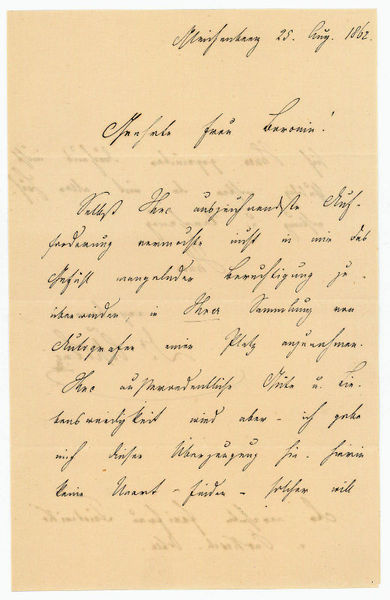 Gleichenberg 25. Aug. 1862.
Geehrte Frau Baronin!
Selbst Ihre auszeichnendste Auf-
forderung vermochte nicht in mir das
Gefühl mangelnder Berechtigung zu
überwinden in Ihrer Sammlung von
Autografen einen Platz anzunehmen.
Ihre außerordentliche Güte u. Lie-
benswürdigkeit wird aber – ich gebe
mich dieser Überzeugung hin – hierin
keine Unart – finden – solcher will